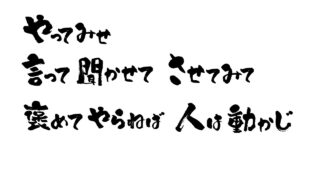 やってみせ
言って聞かせて させてみて
褒めてやらねば 人は動かじ